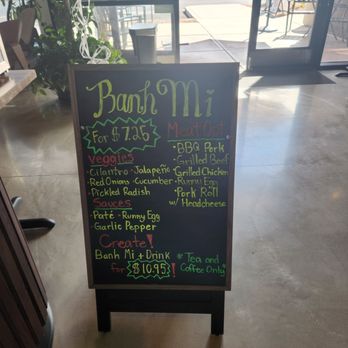 Banh Mi
For $7.25
Meat Opt.
Veggies
• Cilantro • Jalapeño
• Red Onions • Cucumber
• Pickled Radish
• BBQ Pork
• Grilled Beef
• Grilled Chicken
• Runny Egg
• Pork Roll
w/ Headcheese
Sauces
• Paté • Runny Egg
• Garlic Pepper
Create!
Banh Mi + Drink
for $10.95!
* Tea and
Coffee Only